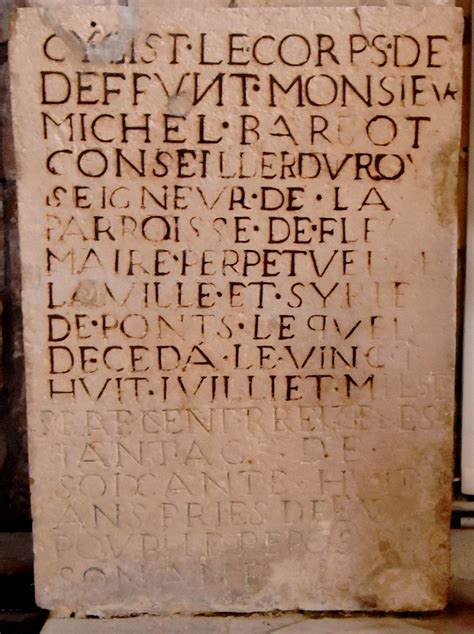 CY·GIST·LE·CORPS·DE
DEFFVNT·MONSIEV
MICHEL·BARDOT
CONSEILLER DV ROY
SEIGNEVR·DE·LA
PARROISSE·DE
MAIRE·PERPETVEL
LA VILLE·ET
DE·PONTS·LEQVEL
DECEDA·LE·VINGT
HVIT·IVILLIET
CENT TREIZE ES
TANT AGE DE
SOIXANTE HVIT
ANS PRIES DIEV
POVR LE REPOS
SON AME